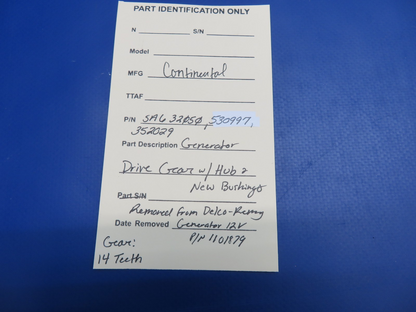 PART IDENTIFICATION ONLY
N S/N
Model
MFG Continental
TTAF
P/N SA632050, 530997,
352029
Part Description Generator
Drive Gear w/ Hub &
New Bushings
Part S/N
Removed from Delco-Remy
Date Removed Generator 12V
P/N 1101879
Gear:
14 Teeth